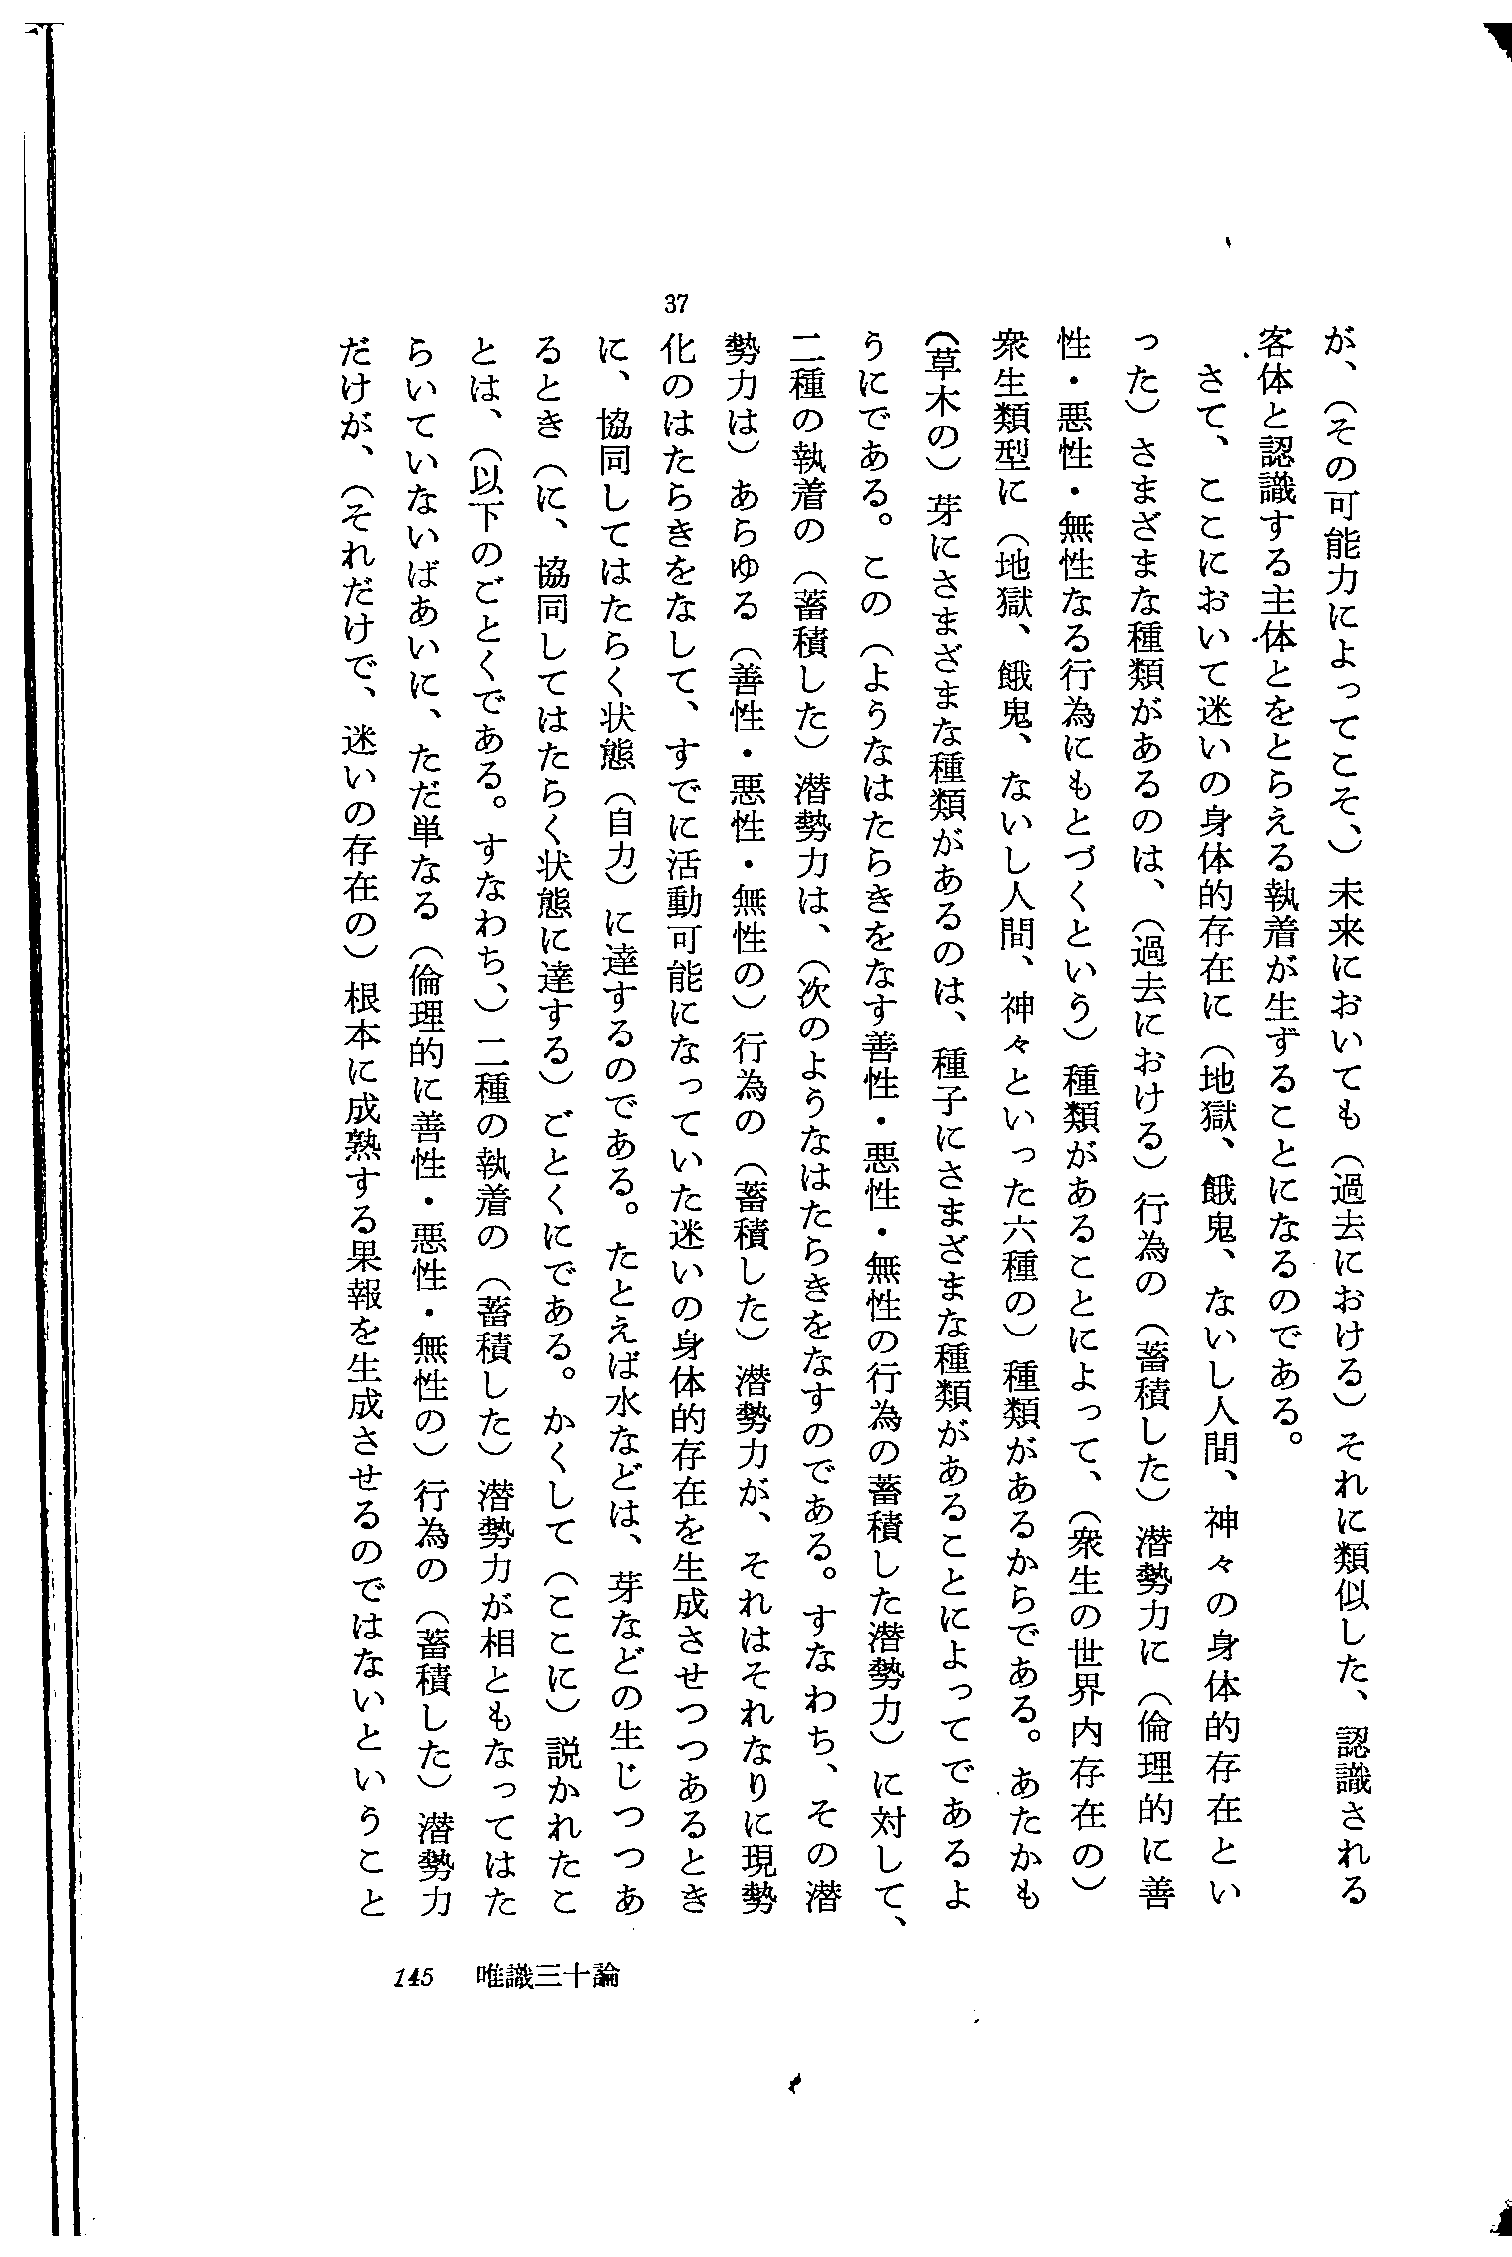 が、（その可能力によってこそ、）未来においても（過去における）それに類似した、認識される
客体と認識する主体とをとらえる執着が生ずることになるのである。
さて、ここにおいて迷いの身体的存在に（地獄、餓鬼、ないし人間、神々の身体的存在とい
った）さまざまな種類があるのは、（過去における）行為の（蓄積した）潜勢力に（倫理的に善
性・悪性・無性なる行為にもとづくという）種類があることによって、（衆生の世界内存在の）
衆生類型に（地獄、餓鬼、ないし人間、神々といった六種の）種類があるからである。あたかも
（草木の）芽にさまざまな種類があるのは、種子にさまざまな種類があることによってであるよ
うにである。この（ようなはたらきをなす善性・悪性・無性の行為の蓄積した潜勢力）に対して、
二種の執着の（蓄積した）潜勢力は、（次のようなはたらきをなすのである。すなわち、その潜
勢力は）あらゆる（善性・悪性・無性の）行為の（蓄積した）潜勢力が、それはそれなりに現勢
37
化のはたらきをなして、すでに活動可能になっていた迷いの身体的存在を生成させつつあるとき
に、協同してはたらく状態（自力）に達するのである。たとえば水などは、芽などの生じつつあ
るとき（に、協同してはたらく状態に達する）ごとくにである。かくして（ここに）説かれたこ
とは、（以下のごとくである。すなわち、）二種の執着の（蓄積した）潜勢力が相ともなってはた
らいていないばあいに、ただ単なる（倫理的に善性・悪性・無性の）行為の（蓄積した）潜勢力
だけが、（それだけで、迷いの存在の）根本に成熟する果報を生成させるのではないということ
145 唯識三十論